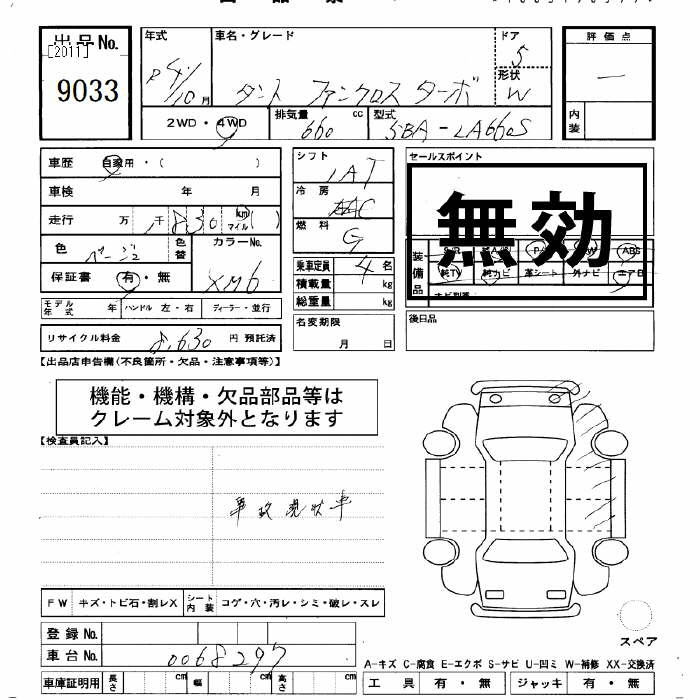 出品No.
[2011]
9033
年式
R4/10月
車名・グレード
タント ファンクロス ターボ
ドア
5
形状
W
評価点
—
内装
2WD・4WD
排気量
660 cc
型式
5BA-LA660S
車歴 自家用・(　)
車検 年 月
走行 万 千 km マイル( )
色 ベージュ
色替
カラーNo.
XM6
保証書 有・無
モデル年式 年 ハンドル 左・右 ディーラー・並行
リサイクル料金 8,630 円 預託済
シフト
IAT
冷房
AAC
燃料
G
乗車定員 4 名
積載量 kg
総重量 kg
名変期限
月 日
セールスポイント
無効
装備品 S/R 純AW PS PW ABS
純TV 純ナビ 革シート 外ナビ エアB
後日品
【出品店申告欄(不良箇所・欠品・注意事項等)】
機能・機構・欠品部品等は
クレーム対象外となります
【検査員記入】
事故現状車
FW キズ・トビ石・割レX シート内装 コゲ・穴・汚レ・シミ・破レ・スレ
登録No.
車台No. 0068297
車庫証明用 長さ cm 幅 cm 高さ cm
スペア
A-キズ C-腐食 E-エクボ S-サビ U-凹ミ W-補修 XX-交換済
工具 有・無 ジャッキ 有・無